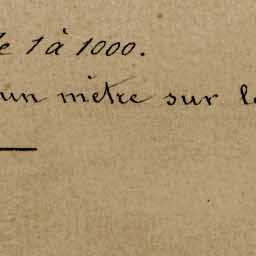 de 1 à 1000.
un mètre sur le